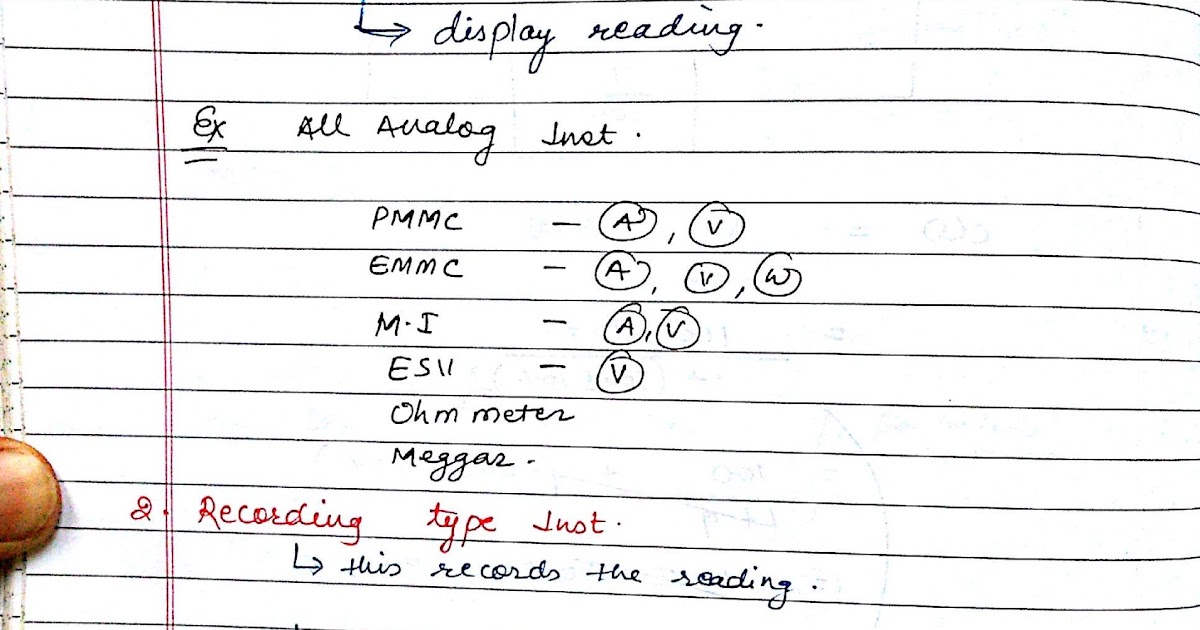 ↳ display reading.
Ex All Analog Inst.
PMMC – A, V
EMMC – A, V, W
M.I – A, V
ESV – V
Ohm meter
Meggar.
2. Recording type Inst.
↳ this records the reading.